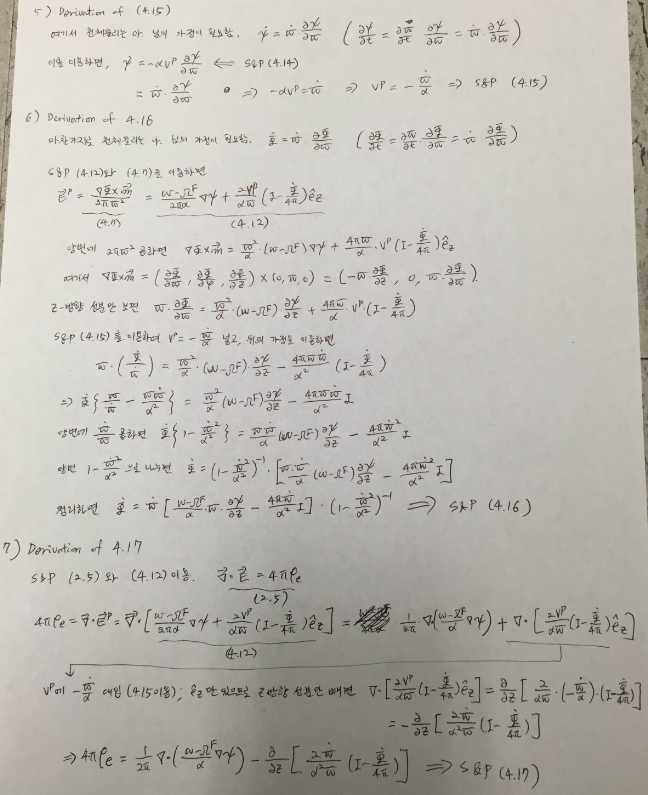 5) Derivation of (4.15)
여기서 전체미분은 아닌 가정이 필요함. ψ̇ = ϖ̇ ∂ψ/∂ϖ ( ∂ψ/∂t = ∂ϖ/∂t ∂ψ/∂ϖ = ϖ̇ ∂ψ/∂ϖ )
이를 이용하면, ψ̇ = -αV^P ∂ψ/∂ϖ ⇐ S&P (4.14)
= ϖ̇ · ∂ψ/∂ϖ ⇒ -αV^P = ϖ̇ ⇒ V^P = -ϖ̇/α ⇒ S&P (4.15)
6) Derivation of 4.16
마찬가지로, 가정이 필요함. Φ̇ = ϖ̇ ∂Φ/∂ϖ ( ∂Φ/∂t = ∂ϖ/∂t · ∂Φ/∂ϖ = ϖ̇ ∂Φ/∂ϖ )
S&P (4.12)와 (4.7)를 이용하면
E⃗^P = ∇Φ×m⃗/2πϖ² = (ω-Ω^F)/2πα ∇ψ + 2V^P/αϖ (I-Φ̇/4π) ê_z
(4.7) (4.12)
양변에 2πϖ² 곱하면 ∇Φ×m⃗ = ϖ²/α · (ω-Ω^F) ∇ψ + 4πϖ/α · V^P (I-Φ̇/4π) ê_z
여기서 ∇Φ×m⃗ = (∂Φ/∂ϖ, ∂Φ/∂φ, ∂Φ/∂z) × (0, ϖ, 0) = (-ϖ ∂Φ/∂z, 0, ϖ · ∂Φ/∂ϖ).
z-방향 성분만 보면 ϖ · ∂Φ/∂ϖ = ϖ²/α · (ω-Ω^F) ∂ψ/∂z + 4πϖ/α · V^P · (I-Φ̇/4π)
S&P (4.15)를 이용하여 V^P = -ϖ̇/α 넣고, 위의 가정도 이용하면
ϖ · (Φ̇/ϖ̇) = ϖ²/α · (ω-Ω^F) · ∂ψ/∂z - 4πϖϖ̇/α² (I-Φ̇/4π)
⇒ Φ̇ { ϖ/ϖ̇ - ϖϖ̇/α² } = ϖ²/α (ω-Ω^F) ∂ψ/∂z - 4πϖϖ̇/α² I
양변에 ϖ̇/ϖ 곱하면 Φ̇ { 1-ϖ̇²/α² } = ϖϖ̇/α (ω-Ω^F) ∂ψ/∂z - 4πϖ̇²/α² I
양변 1-ϖ̇²/α² 으로 나누면 Φ̇ = (1-ϖ̇²/α²)^-1 · [ ϖ·ϖ̇/α (ω-Ω^F) ∂ψ/∂z - 4πϖ̇²/α² I ]
정리하면 Φ̇ = ϖ̇ [ (ω-Ω^F)/α · ϖ · ∂ψ/∂z - 4πϖ̇/α² I ] · (1-ϖ̇²/α²)^-1 ⇒ S&P (4.16)
7) Derivation of 4.17
S&P (2.5)와 (4.12) 이용. ∇⃗·E⃗ = 4πρe
(2.5)
4πρe = ∇⃗·E⃗^P = ∇⃗· [ (ω-Ω^F)/2πα ∇ψ + 2V^P/αϖ (I-Φ̇/4π) ê_z ] = 1/2π ∇·((ω-Ω^F)/α ∇ψ) + ∇· [ 2V^P/αϖ (I-Φ̇/4π) ê_z ]
(4.12)
V^P에 -ϖ̇/α 대입 (4.15이용); ê_z만 있으므로 z방향 성분만 떼면 ∇· [ 2V^P/αϖ (I-Φ̇/4π) ê_z ] = ∂/∂z [ 2/αϖ · (-ϖ̇/α) · (I-Φ̇/4π) ]
= -∂/∂z [ 2ϖ̇/α²ϖ (I-Φ̇/4π) ]
⇒ 4πρe = 1/2π ∇·((ω-Ω^F)/α ∇ψ) - ∂/∂z [ 2ϖ̇/α²ϖ (I-Φ̇/4π) ] ⇒ S&P (4.17)